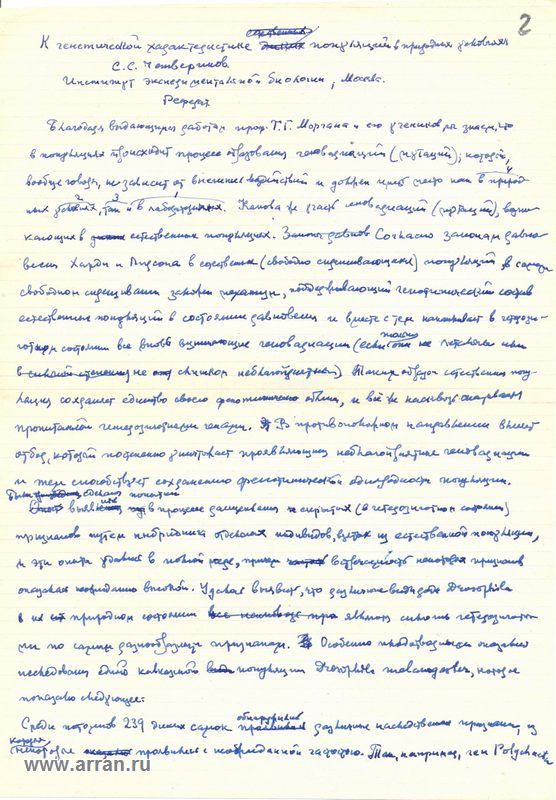 2
естественных
К генетической характеристике популяций в природных условиях
С.С. Четвериков
Институт экспериментальной биологии, Москва.
Реферат
Благодаря выдающимся работам проф. Т.Г. Моргана и его учеников мы знаем, что
в популяциях происходит процесс образования геновариаций (мутаций), который,
вообще говоря, не зависит от внешних воздействий и должен иметь место как в природ-
ных условиях, так и в лабораторных. Какова же участь геновариаций (мутаций), возни-
кающих в естественных популяциях. Согласно законам равно-
весия Харди и Пирсона в естественных (свободно скрещивающихся) популяций, в самом
свободном скрещивании заложен механизм, поддерживающий генотипический состав
естественных популяций в состоянии равновесия и вместе с тем накапливает в гетерози-
готном состоянии все вновь возникающие геновариации (если только они не летальны или
не слишком неблагоприятны). Таким образом естественная попу-
ляция сохраняет единство своего фенотипического облика, и всё же насквозь оказывается
пропитанной гетерозиготными генами. В противоположном направлении влияет
отбор, который постепенно уничтожает проявляющиеся неблагоприятные геновариации
и тем способствует сохранению фенотипической однородности популяции.
Были сделаны попытки
выявить в процессе расщепления скрытых (в гетерозиготном состоянии)
признаков путем инбридинга отдельных индивидов, взятых из естественной популяции,
и эти опыты удались в полной мере, причем встречаемость некоторых признаков
оказалась неожиданно высокой. Удалось выявить, что различные виды рода Drosophila
в их природном состоянии явились сплошь гетерозиготны-
ми по самым разнообразным признакам. Особенно плодотворными оказались
исследования одной кавказской популяции Drosophila melanogaster, которое
показало следующее:
Среди потомков 239 диких самок обнаружились различные наследственные признаки, из
которых
некоторые проявились с неожиданной частотою. Так, например, ген Polychaeta
www.arran.ru